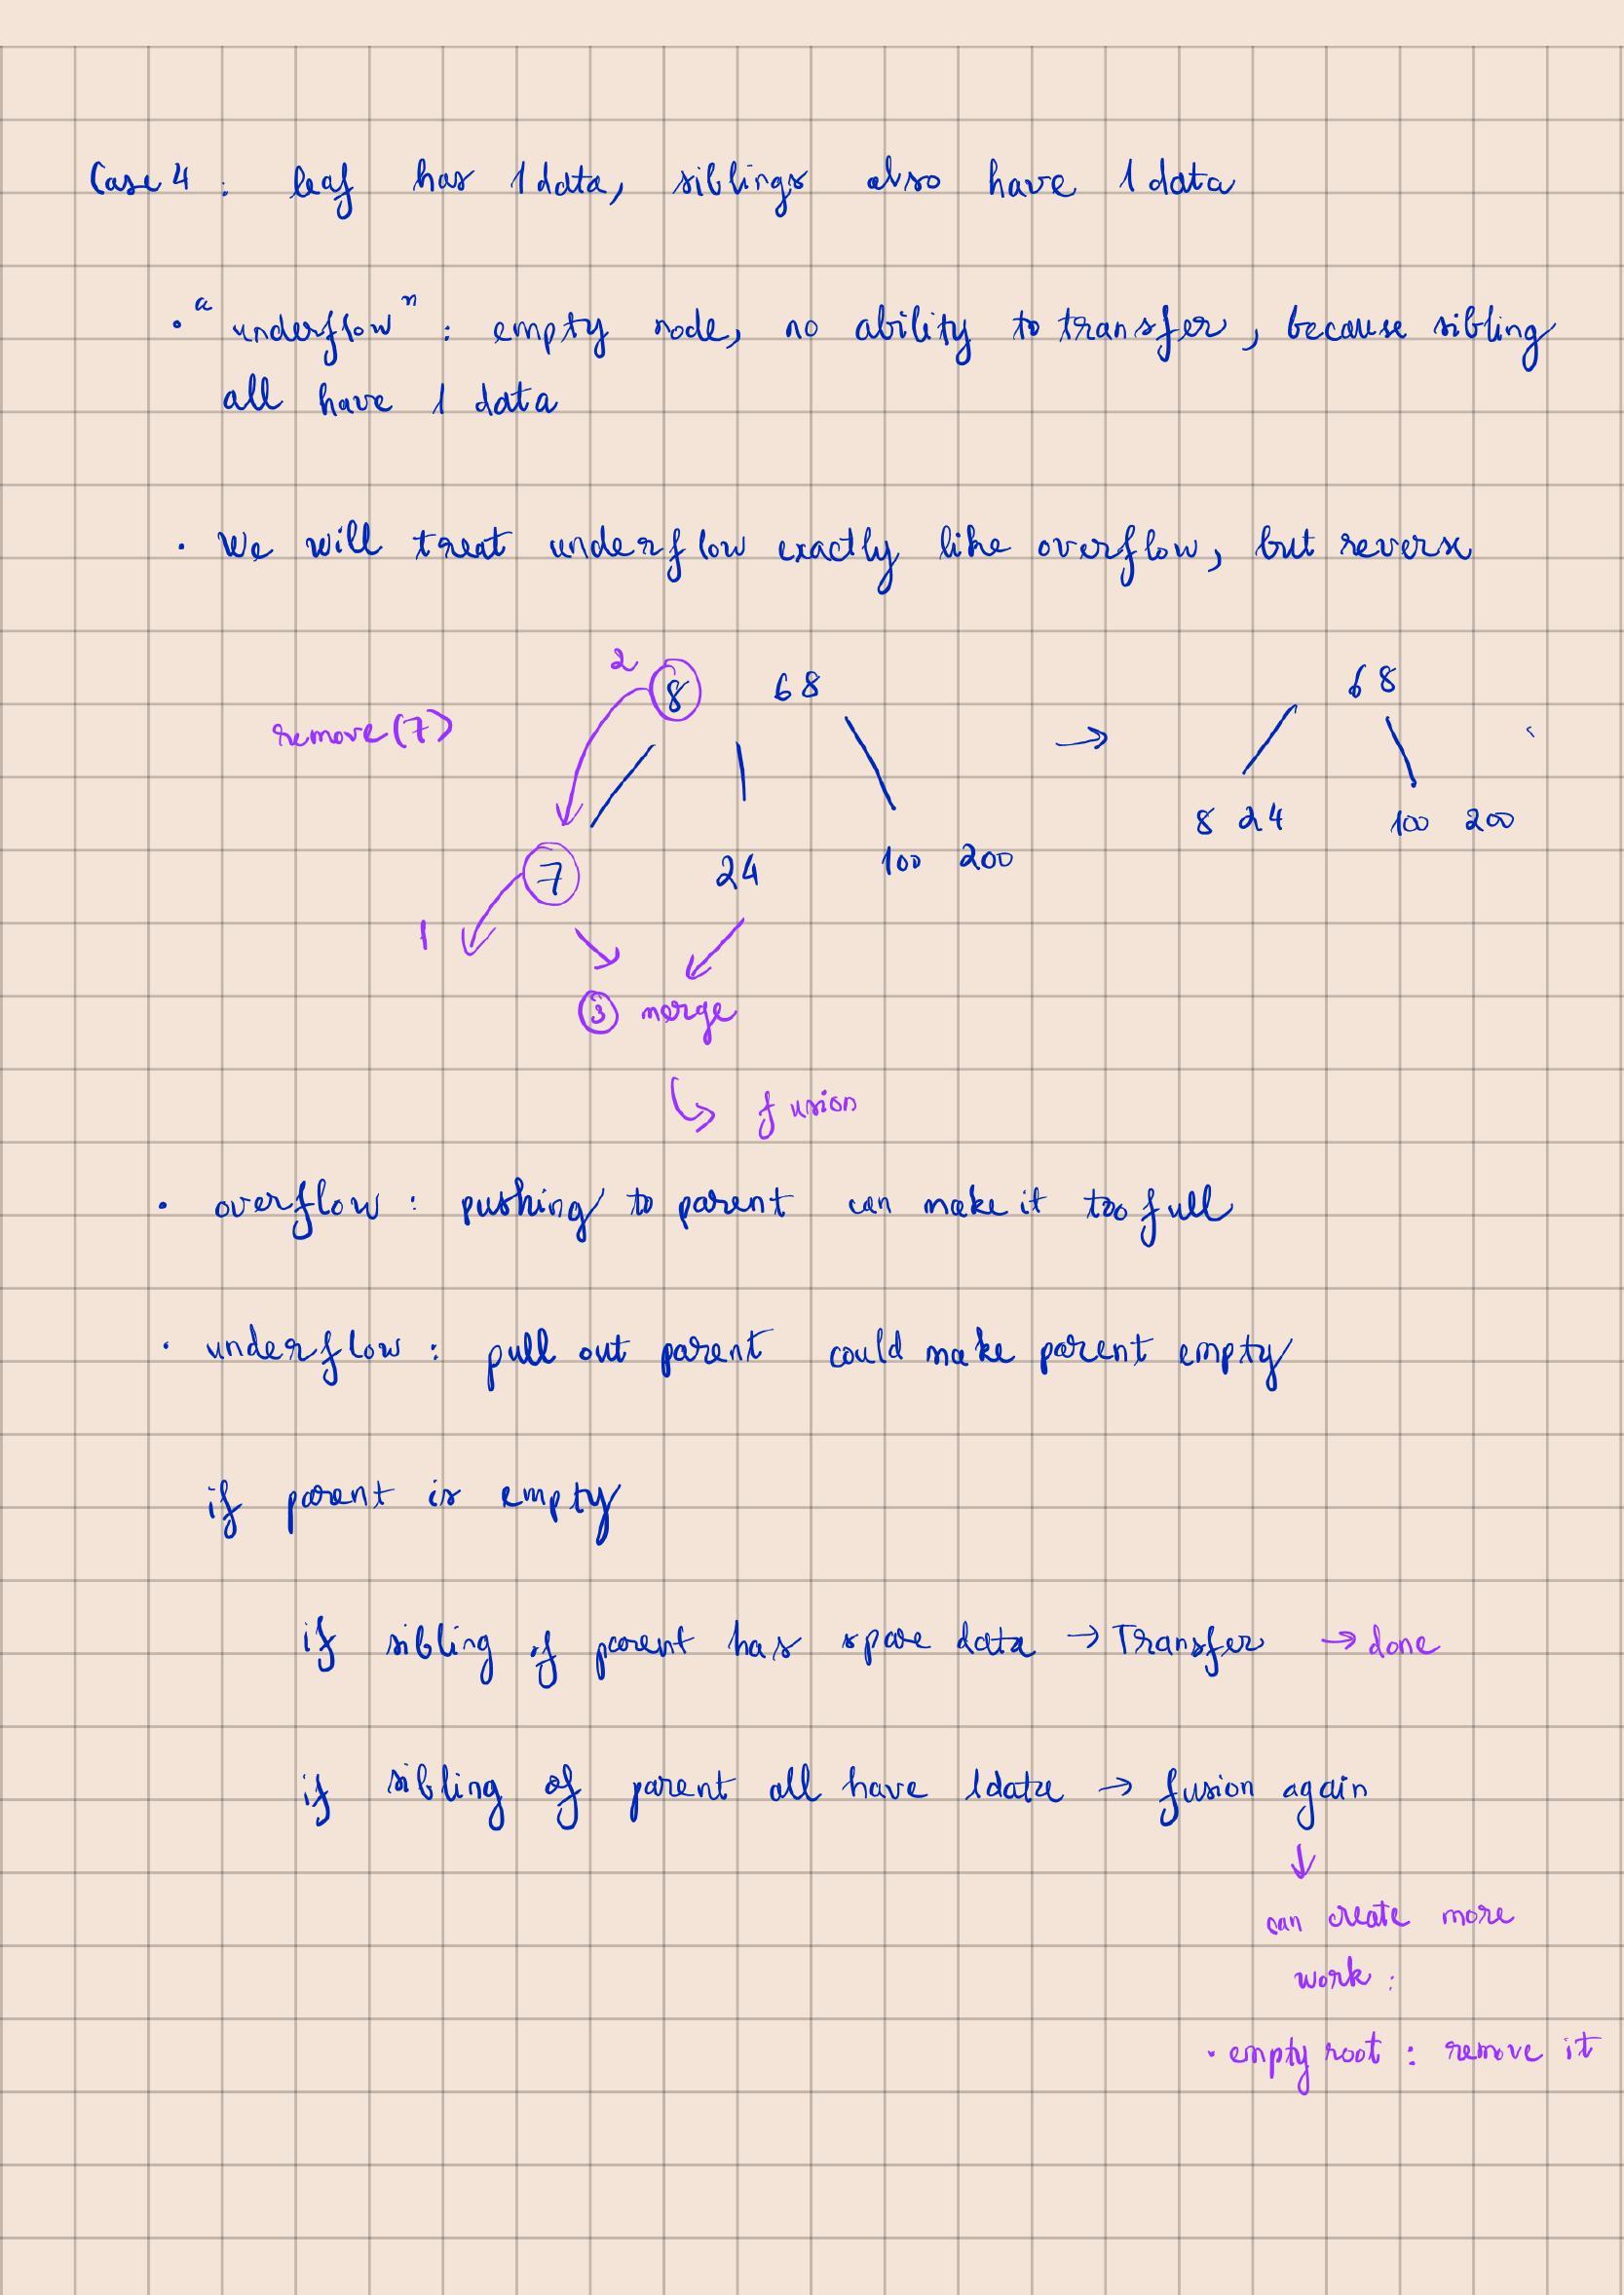 Case 4 : leaf has 1 data, siblings also have 1 data
• "underflow" : empty node, no ability to transfer, because sibling
all have 1 data
• We will treat underflow exactly like overflow, but reverse
2 8 68 68
remove(7) →
8 24 100 200
7 24 100 200
1
③ merge
↳ fusion
• overflow : pushing to parent can make it too full
• underflow : pull out parent could make parent empty
if parent is empty
if sibling of parent has spare data → Transfer → done
if sibling of parent all have 1 data → fusion again
↓
can create more
work :
• empty root : remove it